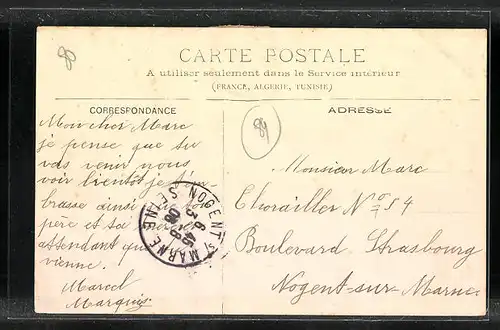 89
CARTE POSTALE
A utiliser seulement dans le Service intérieur
(FRANCE, ALGERIE, TUNISIE)
CORRESPONDANCE
ADRESSE
89
Mon cher Marc
je pense que tu
vas venir nous
voir bientôt je t'em
brasse ainsi que ton
père et ta mère
attendant qu
vienne.
Marcel
Marquis
NOGENT S/ MARNE
SEINE
6 45
3 -8
08
Monsieur Marc
Chorailler No 54
Boulevard Strasbourg
Nogent-sur-Marne